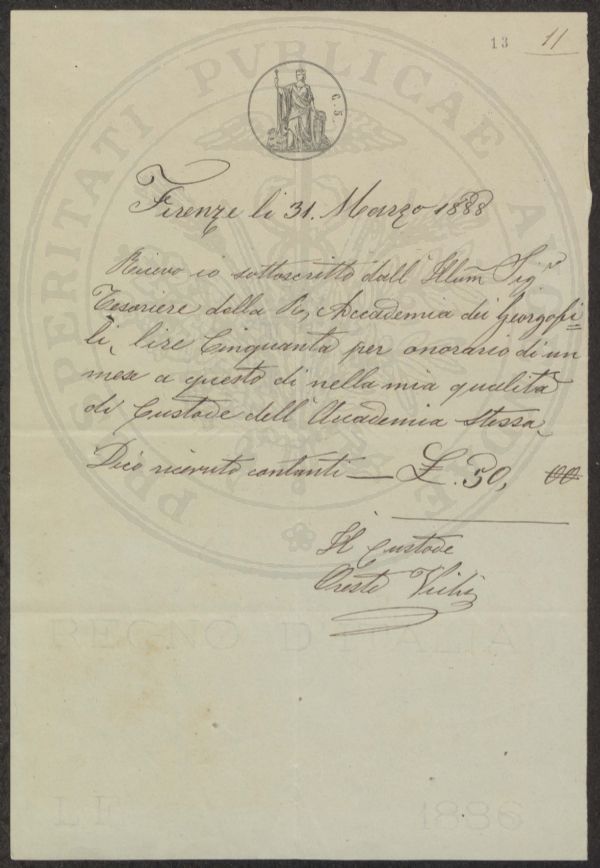 13 11
PERITATI PVBLICAE
C. 5.
Firenze li 31. Marzo 1888
Ricevo io sottoscritto dall' Illum Sigr
Tesoriere della R. Accademia dei Georgofi=
li, lire Cinquanta per onorario di un
mese a questo dì nella mia qualità
di Custode dell' Accademia stessa,
Dico ricevuto contanti — £. 50, 00
Il Custode
Oreste
REGNO D'ITALIA
1886